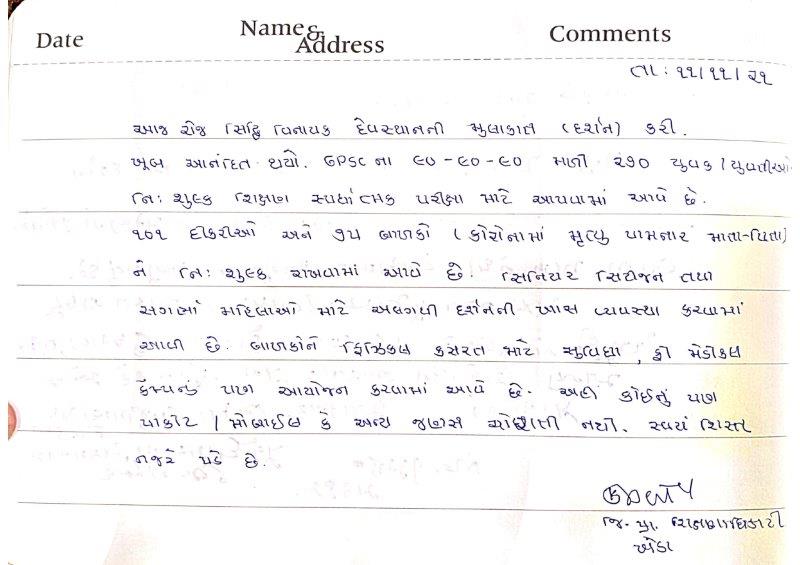 Date
Name &
Address
Comments
તા: ૧૧/૧૧/૨૧
આજ રોજ સિદ્ધિ વિનાયક દેવસ્થાનની મુલાકાત (દર્શન) કરી.
ખૂબ આનંદિત થયો. GPSC ના ૯૦-૯૦-૯૦ મળી ૨૭૦ યુવક / યુવતીઓ
નિ: શુલ્ક શિક્ષણ સ્પર્ધાત્મક પરીક્ષા માટે આપવામાં આવે છે.
૧૦૧ દીકરીઓ અને ૭૫ બાળકો (કોરોનામાં મૃત્યુ પામનાર માતા-પિતા)
ને નિ: શુલ્ક રાખવામાં આવે છે. સિનિયર સિટીજન તથા
સગર્ભા મહિલાઓ માટે અલગથી દર્શનની ખાસ વ્યવસ્થા કરવામાં
આવી છે. બાળકોને ફિઝિકલ કસરત માટે સુવિધા, ફ્રી મેડીકલ
કેમ્પનું પણ આયોજન કરવામાં આવે છે. અહીં કોઈનું પણ
પાકીટ / મોબાઈલ કે અન્ય જણસ ચોરાતી નથી. સ્વયં શિસ્ત
નજરે પડે છે.
જિ. પ્રા. શિક્ષણાધિકારી
ખેડા